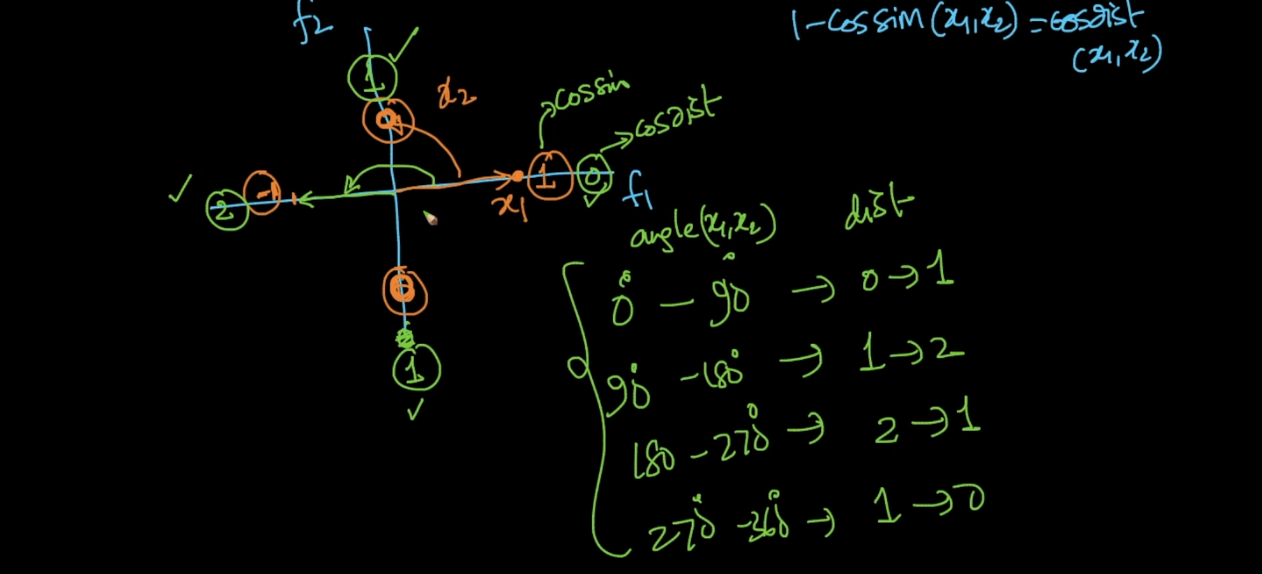 f2
1-cossim(x1,x2) = cosdist
(x1,x2)
1 ✓
0
x2
cossim
cosdist
✓ 2 -1
1 0 f1
x1
angle(x1,x2) dist
0° - 90° → 0→1
0
1
90° -180° → 1→2
180 - 270° → 2→1
270° -360° → 1→0